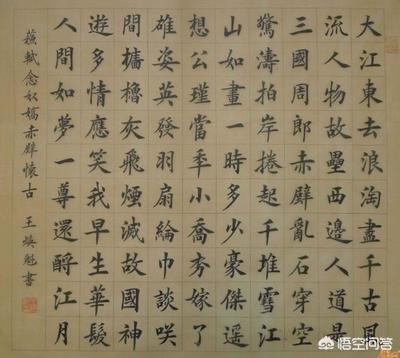 大江東去浪淘盡千古風
流人物故壘西邊人道是
三國周郎赤壁亂石穿空
驚濤拍岸捲起千堆雪江
山如畫一時多少豪傑遙
想公瑾當秊小喬初嫁了
雄姿英發羽扇綸巾談咲
間檣櫓灰飛煙滅故國神
遊多情應笑我早生華髮
人間如夢一尊還酹江月
蘇軾念奴嬌赤壁懷古 王煥魁書
悟空问答